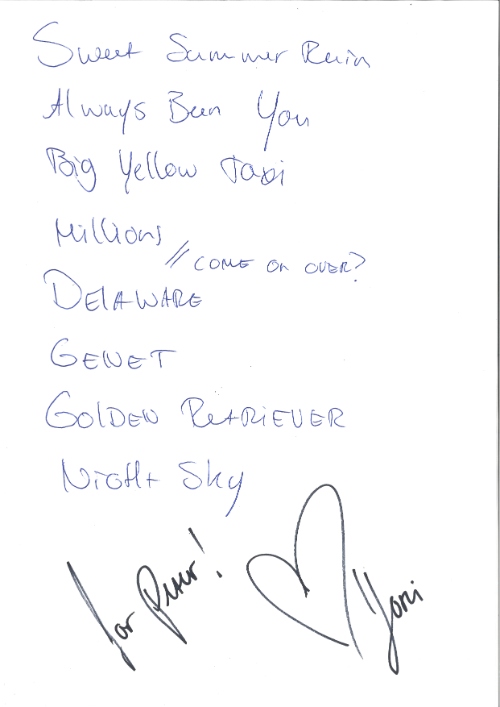 Sweet Summer Rain
Always Been You
Big Yellow Taxi
Millions
// COME ON OVER?
DELAWARE
GENET
GOLDEN RETRIEVER
NIGHt Sky
for Peter!
Yoni